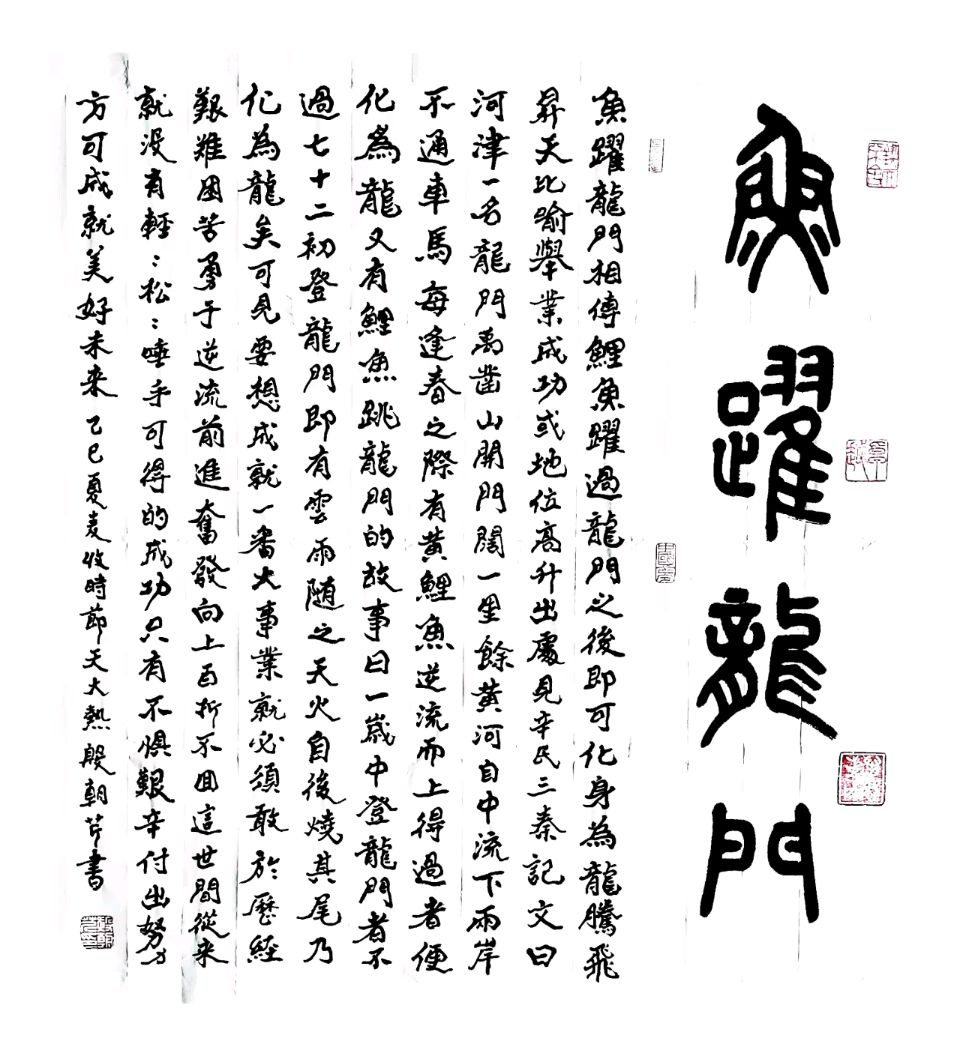 魚躍龍門
魚躍龍門相傳鯉魚躍過龍門之後即可化身為龍騰飛
昇天比喻舉業成功或地位高升出處見辛民三秦記文曰
河津一名龍門禹凿山開門闊一里餘黄河自中流下兩岸
不通車馬每逢春之際有黄鯉魚逆流而上得過者便
化為龍又有鯉魚跳龍門的故事曰一歲中登龍門者不
過七十二初登龍門即有雲雨随之天火自後燒其尾乃
化為龍矣可見要想成就一番大事業就必須敢於歷經
艱難困苦勇于逆流前進奮發向上百折不回這世間從来
就没有輕：松：唾手可得的成功只有不惧艱辛付出努力
方可成就美好未来 乙巳夏麦收時節天大熱殷朝芹書